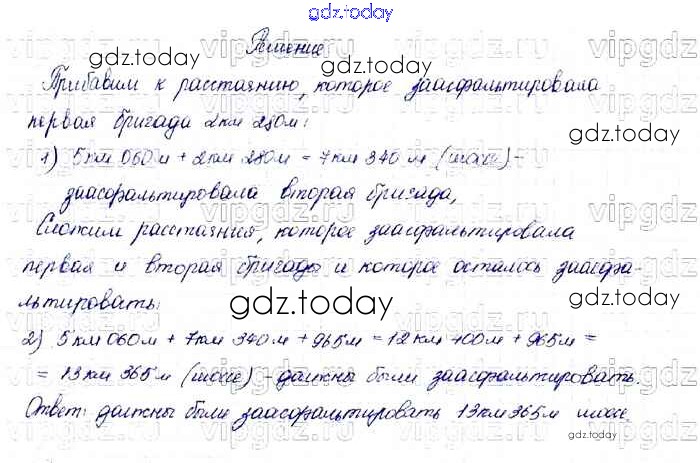 gdz.today
Решение
Прибавим к расстаянию, которое заасфальтировала
первая бригада 2км 280м:
1) 5км 060м + 2км 280м = 7км 340м (шоссе) -
заасфальтировала вторая бригада,
Сложим расстаяния, которое заасфальтировала
первая и вторая бригады и которое осталось заасфа-
льтировать:
2) 5км 060м + 7км 340м + 965м = 12км 400м + 965м =
= 13км 365м (шоссе) - должны были заасфальтировать.
Ответ: должны были заасфальтировать 13км 365м шоссе.
gdz.today
gdz.today
gdz.today
gdz.today
gdz.today
gdz.today
gdz.today
vipgdz.ru